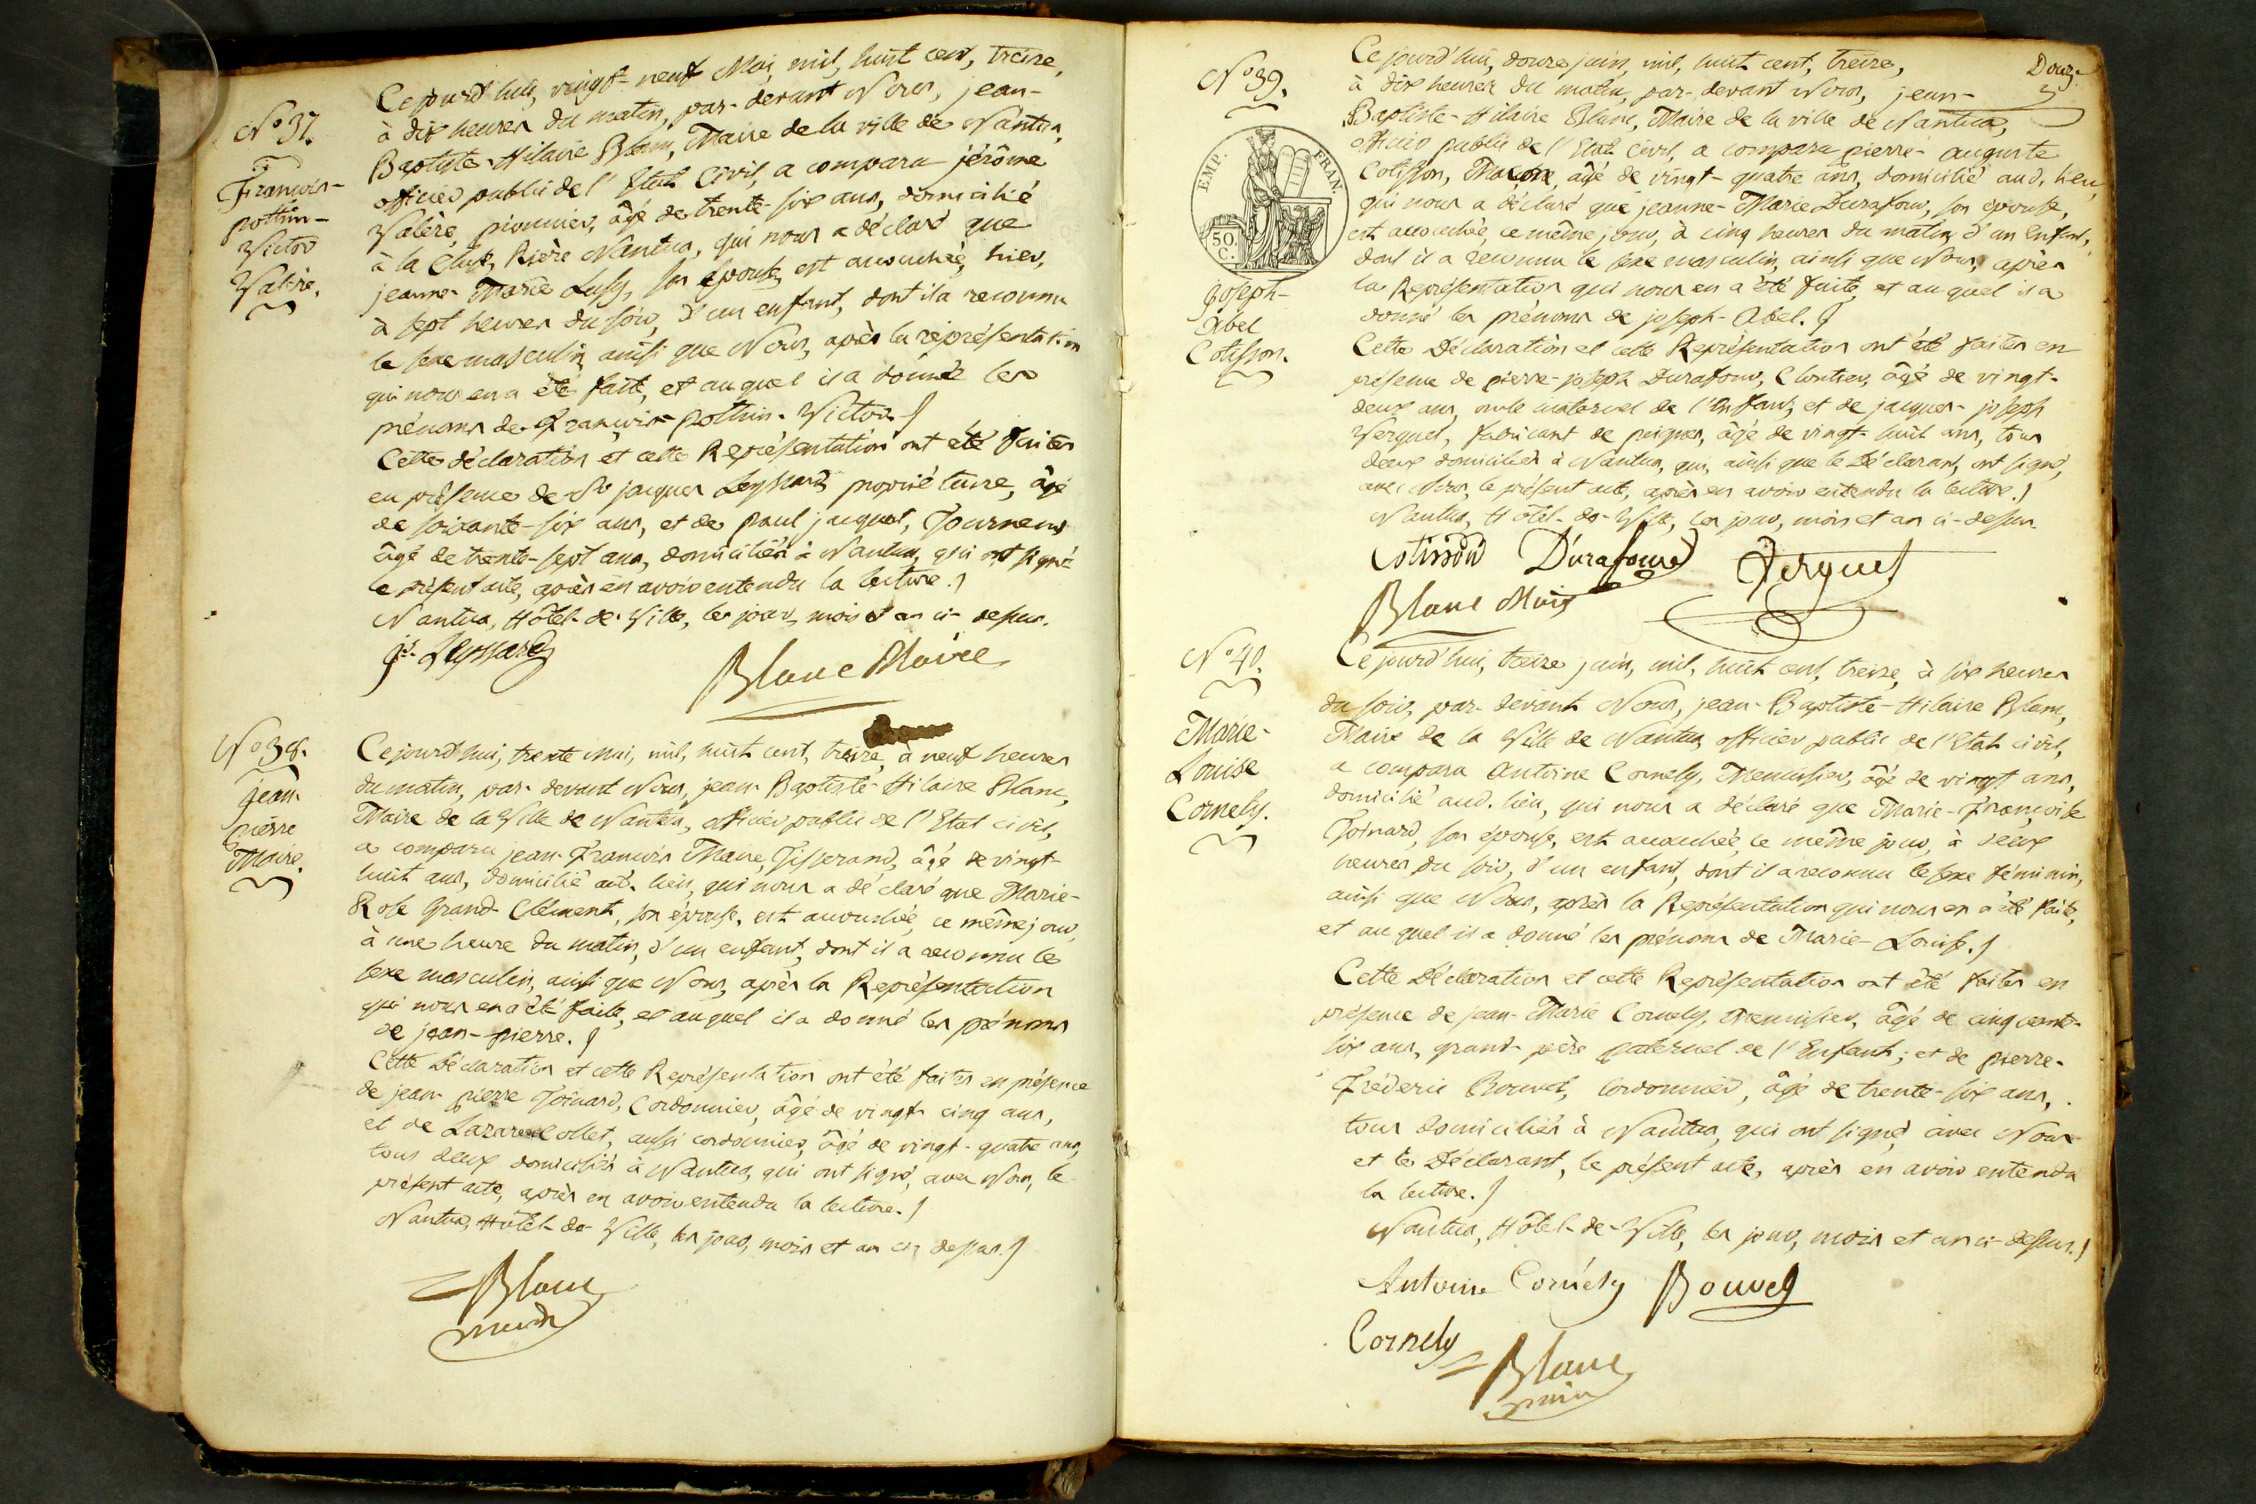 N.º 37.
François-
pothin-
Victor
Valère.
Ce jourd'hui, vingt-neuf Mai, mil, huit cent, treize,
à dix heures du matin, par-devant Nous, jean-
Baptiste-Hilaire Blanc, Maire de la ville de Nantua,
officier public de l'Etat Civil, a comparu jérôme
Valère, pionnier, âgé de trente-six ans, domicilié
à la Cluse, Rière Nantua, qui nous a déclaré que
jeanne-Marie, son épouse, est accouchée, hier,
à sept heures du soir, d'un enfant, dont il a reconnu
le sexe masculin, ainsi que Nous, après la représentation
qui nous en a été faite, et auquel il a donné les
prénoms de François-pothin-Victor.
Cette déclaration et cette Représentation ont été faites
en présence de Sr. jacques Leyssard, propriétaire, âgé
de soixante-six ans, et de paul jacquet, Tourneur
âgé de trente-sept ans, domiciliés à Nantua, qui ont signé
le présent acte, après en avoir entendu la lecture.
Nantua, Hôtel-de-Ville, les jour, mois et an ci-dessus.
Leyssard
Blanc Maire
N.º 38.
jean
pierre
Maire.
Ce jourd'hui, trente mai, mil, huit cent, treize, à neuf heures
du matin, par-devant Nous, jean-Baptiste-Hilaire Blanc,
Maire de la Ville de Nantua, officier public de l'Etat civil,
a comparu jean-François Maire, Tisserand, âgé de vingt-
huit ans, domicilié aud. lieu, qui nous a déclaré que Marie-
Rose Grand-Clément, son épouse, est accouchée, ce même jour,
à une heure du matin, d'un enfant, dont il a reconnu le
sexe masculin, ainsi que Nous, après la Représentation
qui nous en a été faite, et auquel il a donné les prénoms
de jean-pierre.
Cette Déclaration et cette Représentation ont été faites en présence
de jean-pierre Toinard, Cordonnier, âgé de vingt-cinq ans,
et de Lazare Collet, aussi cordonnier, âgé de vingt-quatre ans,
tous deux domiciliés à Nantua, qui ont signé, avec Nous, le
présent acte, après en avoir entendu la lecture.
Nantua, Hôtel-de-Ville, les jour, mois et an ci-dessus.
Blanc
maire
Douze
N.º 39.
EMP. FRAN.
50. C.
Joseph-
Abel
Cotisson.
Ce jourd'hui, douze juin, mil, huit cent, treize,
à dix heures du matin, par-devant Nous, jean-
Baptiste-Hilaire Blanc, Maire de la ville de Nantua,
officier public de l'Etat Civil, a comparu pierre-auguste
Cotisson, Maçon, âgé de vingt-quatre ans, domicilié aud. lieu,
qui nous a déclaré que jeanne-Marie Durafour, son épouse,
est accouchée, ce même jour, à cinq heures du matin, d'un Enfant,
dont il a reconnu le sexe masculin, ainsi que Nous, après
la Représentation qui nous en a été faite, et auquel il a
donné les prénoms de joseph-Abel.
Cette Déclaration et cette Représentation ont été faites en
présence de pierre-joseph Durafour, Cloutier, âgé de vingt-
deux ans, oncle maternel de l'Enfant, et de jacques-joseph
Verguet, fabricant de peignes, âgé de vingt-huit ans, tous
deux domiciliés à Nantua, qui, ainsi que le Déclarant, ont signé,
avec Nous, le présent acte, après en avoir entendu la lecture.
Nantua, Hôtel-de-Ville, les jour, mois et an ci-dessus.
Cotisson Durafour Verguet
Blanc Maire
N.º 40.
Marie-
Louise
Cornely.
Ce jourd'hui, treize juin, mil, huit cent, treize, à six heures
du soir, par-devant Nous, jean-Baptiste-Hilaire Blanc,
Maire de la Ville de Nantua, officier public de l'Etat civil,
a comparu Antoine Cornely, Menuisier, âgé de vingt ans,
domicilié aud. lieu, qui nous a déclaré que Marie-Françoise
Toinard, son épouse, est accouchée, ce même jour, à deux
heures du soir, d'un enfant, dont il a reconnu le sexe féminin,
ainsi que Nous, après la Représentation qui nous en a été faite,
et auquel il a donné les prénoms de Marie-Louise.
Cette Déclaration et cette Représentation ont été faites en
présence de jean-Marie Cornely, menuisier, âgé de cinquante-
six ans, grand-père paternel de l'Enfant; et de pierre-
Fréderic Bouvet, cordonnier, âgé de trente-six ans,
tous domiciliés à Nantua, qui ont signé, avec Nous
et le Déclarant, le présent acte, après en avoir entendu
la lecture.
Nantua, Hôtel-de-Ville, les jour, mois et an ci-dessus.
Antoine Cornély Bouvet
Cornely
Blanc
maire